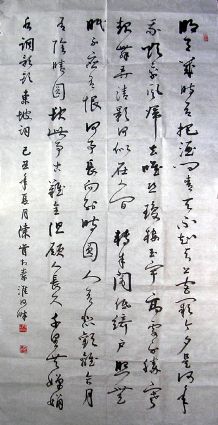 明月幾時有把酒問青天不知天上宮闕今夕是何年
我欲乘風歸去唯恐瓊樓玉宇高處不勝寒
起舞弄清影何似在人間轉朱閣低綺戶照無
眠不應有恨何事長向別時圓人有悲歡離合月
有陰晴圓缺此事古難全但願人長久千里共嬋娟
水調歌頭東坡詞己丑年月陳淮河畔